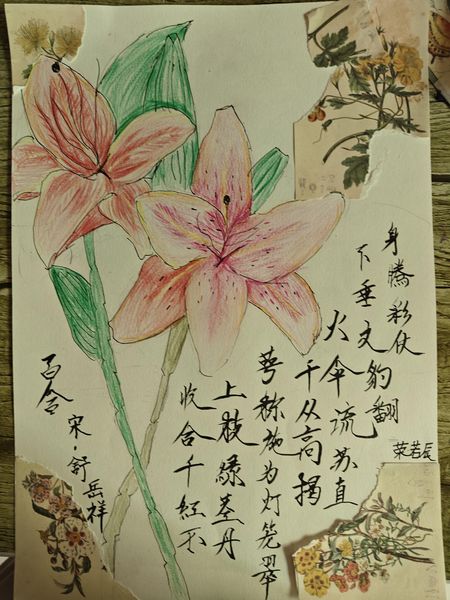 百合
宋·舒岳祥
收合千紅不
上枝绿茎丹
萼称施为灯笼翠
干从高揭
火伞流苏直
下垂文豹翻
身腾彩仗
荣若辰